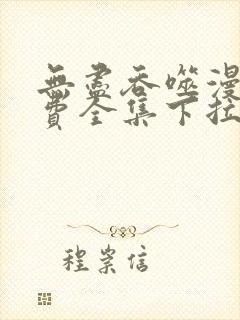 無盡吞噬漫
費全集下拉
程崇信